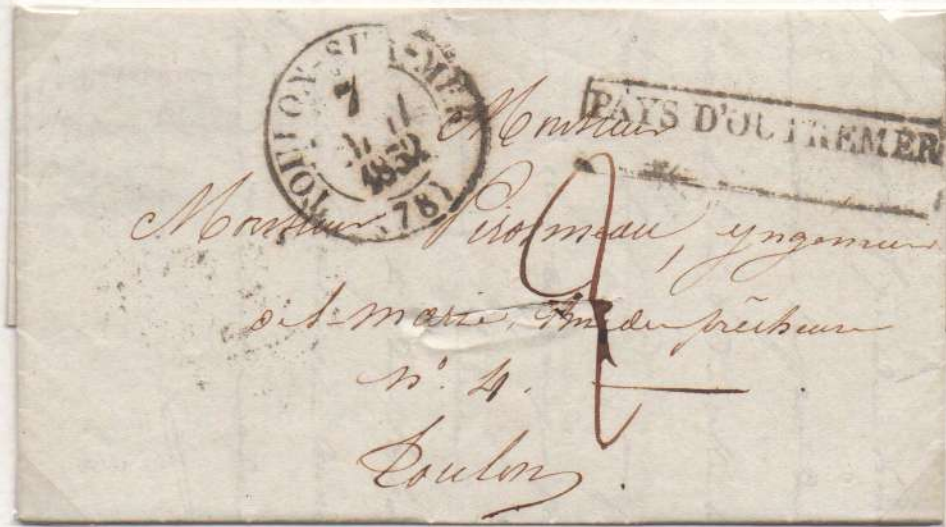 TOULON-SUR-MER
7
1852
(78)
PAYS D'OUTREMER
Monsieur
Monsieur Piromeau, yngenieur
Rue des prêcheurs
n° 4.
Toulon
2